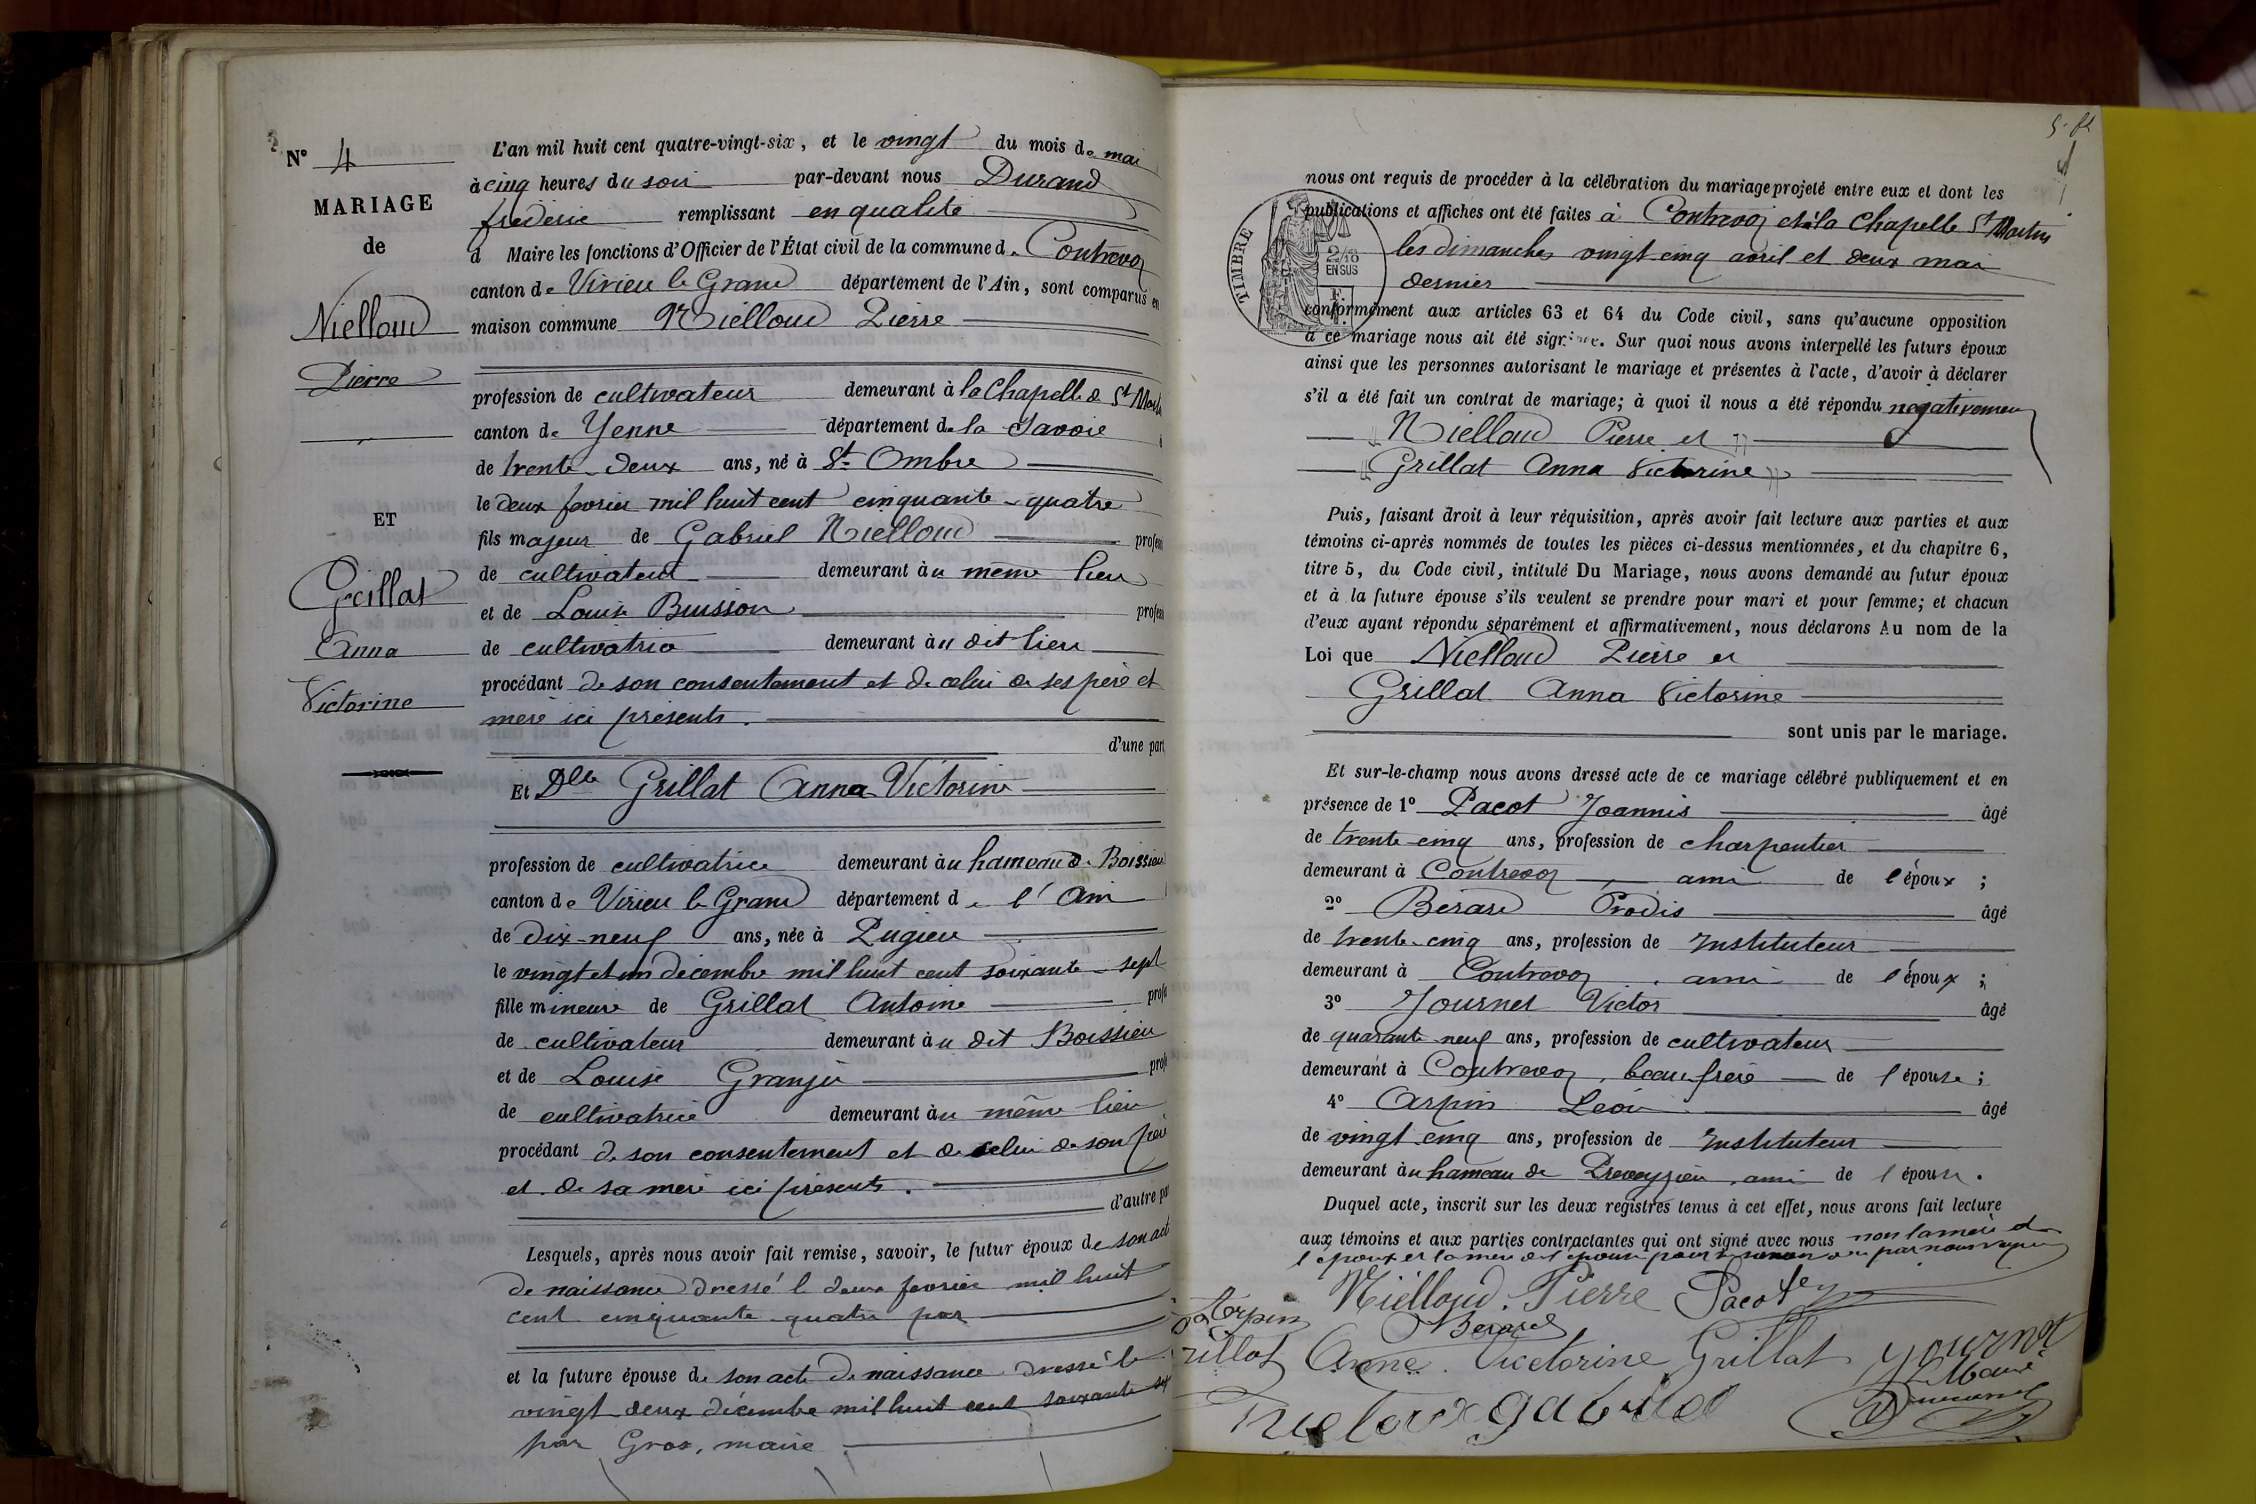 N° 4
MARIAGE
de
Nielloud
Pierre
ET
Grillat
Anna
Victorine
L'an mil huit cent quatre-vingt-six, et le vingt du mois de mai
à cinq heures du soir par-devant nous Durand
frédéric remplissant en qualité
d Maire les fonctions d'Officier de l'État civil de la commune de Contrevoz
canton de Virieu le Grand département de l'Ain, sont comparus en
maison commune Nielloud Pierre
profession de cultivateur demeurant à la Chapelle de St
canton de Yenne département de la Savoie
de trente-deux ans, né à St Ombre
le deux fevrier mil huit cent cinquante-quatre
fils majeur de Gabriel Nielloud
de cultivateur demeurant au même lieu
et de Louise Buisson
de cultivatrice demeurant au dit lieu
procédant de son consentement et de celui de ses père et
mère ici présents.
d'une part
Et Dlle Grillat Anna Victorine
profession de cultivatrice demeurant au hameau de Boissieu
canton de Virieu le Grand département de l'Ain
de dix-neuf ans, née à Pugieu
le vingt et un décembre mil huit cent soixante-sept
fille mineure de Grillat Antoine
de cultivateur demeurant au dit Boissieu
et de Louise Granjú
de cultivatrice demeurant au même lieu
procédant de son consentement et de celui de son père
et de sa mère ici présents.
d'autre
Lesquels, après nous avoir fait remise, savoir, le futur époux de son
de naissance dressé l deux fevrier mil huit
cent cinquante quatre par
et la future épouse de son acte de naissance dressé le
vingt-deux décembre mil huit cent soixante
par Gros, maire
TIMBRE
2/10
EN SUS
nous ont requis de procéder à la célébration du mariage projeté entre eux et dont les
publications et affiches ont été faites à Contrevoz et à la Chapelle St Martin
les dimanches vingt-cinq avril et deux mai
dernier
conformément aux articles 63 et 64 du Code civil, sans qu'aucune opposition
à ce mariage nous ait été signifiée. Sur quoi nous avons interpellé les futurs époux
ainsi que les personnes autorisant le mariage et présentes à l'acte, d'avoir à déclarer
s'il a été fait un contrat de mariage; à quoi il nous a été répondu negativement
Nielloud Pierre et
Grillat Anna Victorine
Puis, faisant droit à leur réquisition, après avoir fait lecture aux parties et aux
témoins ci-après nommés de toutes les pièces ci-dessus mentionnées, et du chapitre 6,
titre 5, du Code civil, intitulé Du Mariage, nous avons demandé au futur époux
et à la future épouse s'ils veulent se prendre pour mari et pour femme; et chacun
d'eux ayant répondu séparément et affirmativement, nous déclarons Au nom de la
Loi que Nielloud Pierre et
Grillat Anna Victorine
sont unis par le mariage.
Et sur-le-champ nous avons dressé acte de ce mariage célébré publiquement et en
présence de 1° Pacot Joannis âgé
de trente cinq ans, profession de charpentier
demeurant à Contrevoz, ami de l'époux ;
2° Bérard Prodis âgé
de trente-cinq ans, profession de Instituteur
demeurant à Contrevoz, ami de l'époux ;
3° Journet Victor âgé
de quarante neuf ans, profession de cultivateur
demeurant à Contrevoz, beau frère de l'épouse ;
4° Arpin Léon âgé
de vingt cinq ans, profession de Instituteur
demeurant au hameau de Preveyzieu, ami de l'épouse.
Duquel acte, inscrit sur les deux registres tenus à cet effet, nous avons fait lecture
aux témoins et aux parties contractantes qui ont signé avec nous non la mère de
l'époux et la mère de l'épouse pour par nous
Nielloud. Pierre Pacot
Arpin Berard
Anna Victorine Grillat Journet
Maire
Durand